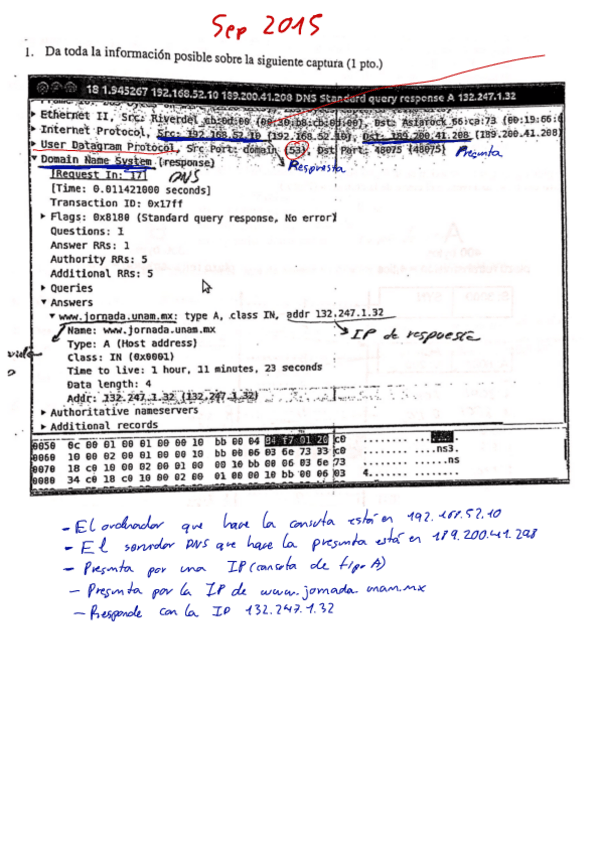 Sep 2015
1. Da toda la información posible sobre la siguiente captura (1 pto.)
18 1.945267 192.168.52.10 189.200.41.208 DNS Standard query response A 132.247.1.32
Ethernet II, Src: Riverdel
Internet Protocol, Src: 192.168.52.10 (192.168.52.10), Dst: 189.200.41.208 (189.200.41.208)
User Datagram Protocol, Src Port: domain (53), Dst Port: 48075 (48075) Pregunta
Respuesta
Domain Name System (response)
[Request In: 17] DNS
[Time: 0.011421000 seconds]
Transaction ID: 0x17ff
Flags: 0x8180 (Standard query response, No error)
Questions: 1
Answer RRs: 1
Authority RRs: 5
Additional RRs: 5
Queries
Answers
www.jornada.unam.mx: type A, class IN, addr 132.247.1.32
Name: www.jornada.unam.mx
IP de respuesta
Type: A (Host address)
Class: IN (0x0001)
Time to live: 1 hour, 11 minutes, 23 seconds
Data length: 4
Addr: 132.247.1.32 (132.247.1.32)
Authoritative nameservers
Additional records
0050 0c 00 01 00 01 00 00 10 bb 00 04 84 f7 01 20 c0
0060 10 00 02 00 01 00 00 10 bb 00 06 03 6e 73 33 c0 ....ns3.
0070 18 c0 10 00 02 00 01 00 00 10 bb 00 06 03 6e 73 ns
0080 34 c0 18 c0 10 00 02 00 01 00 00 10 bb 00 06 03 4.......
- El ordenador que hace la consulta está en 192.168.52.10
- El servidor DNS que hace la pregunta está en 189.200.41.298
- Pregunta por una IP (consulta de tipo A)
- Pregunta por la IP de www.jornada.unam.mx
- Responde con la IP 132.247.1.32